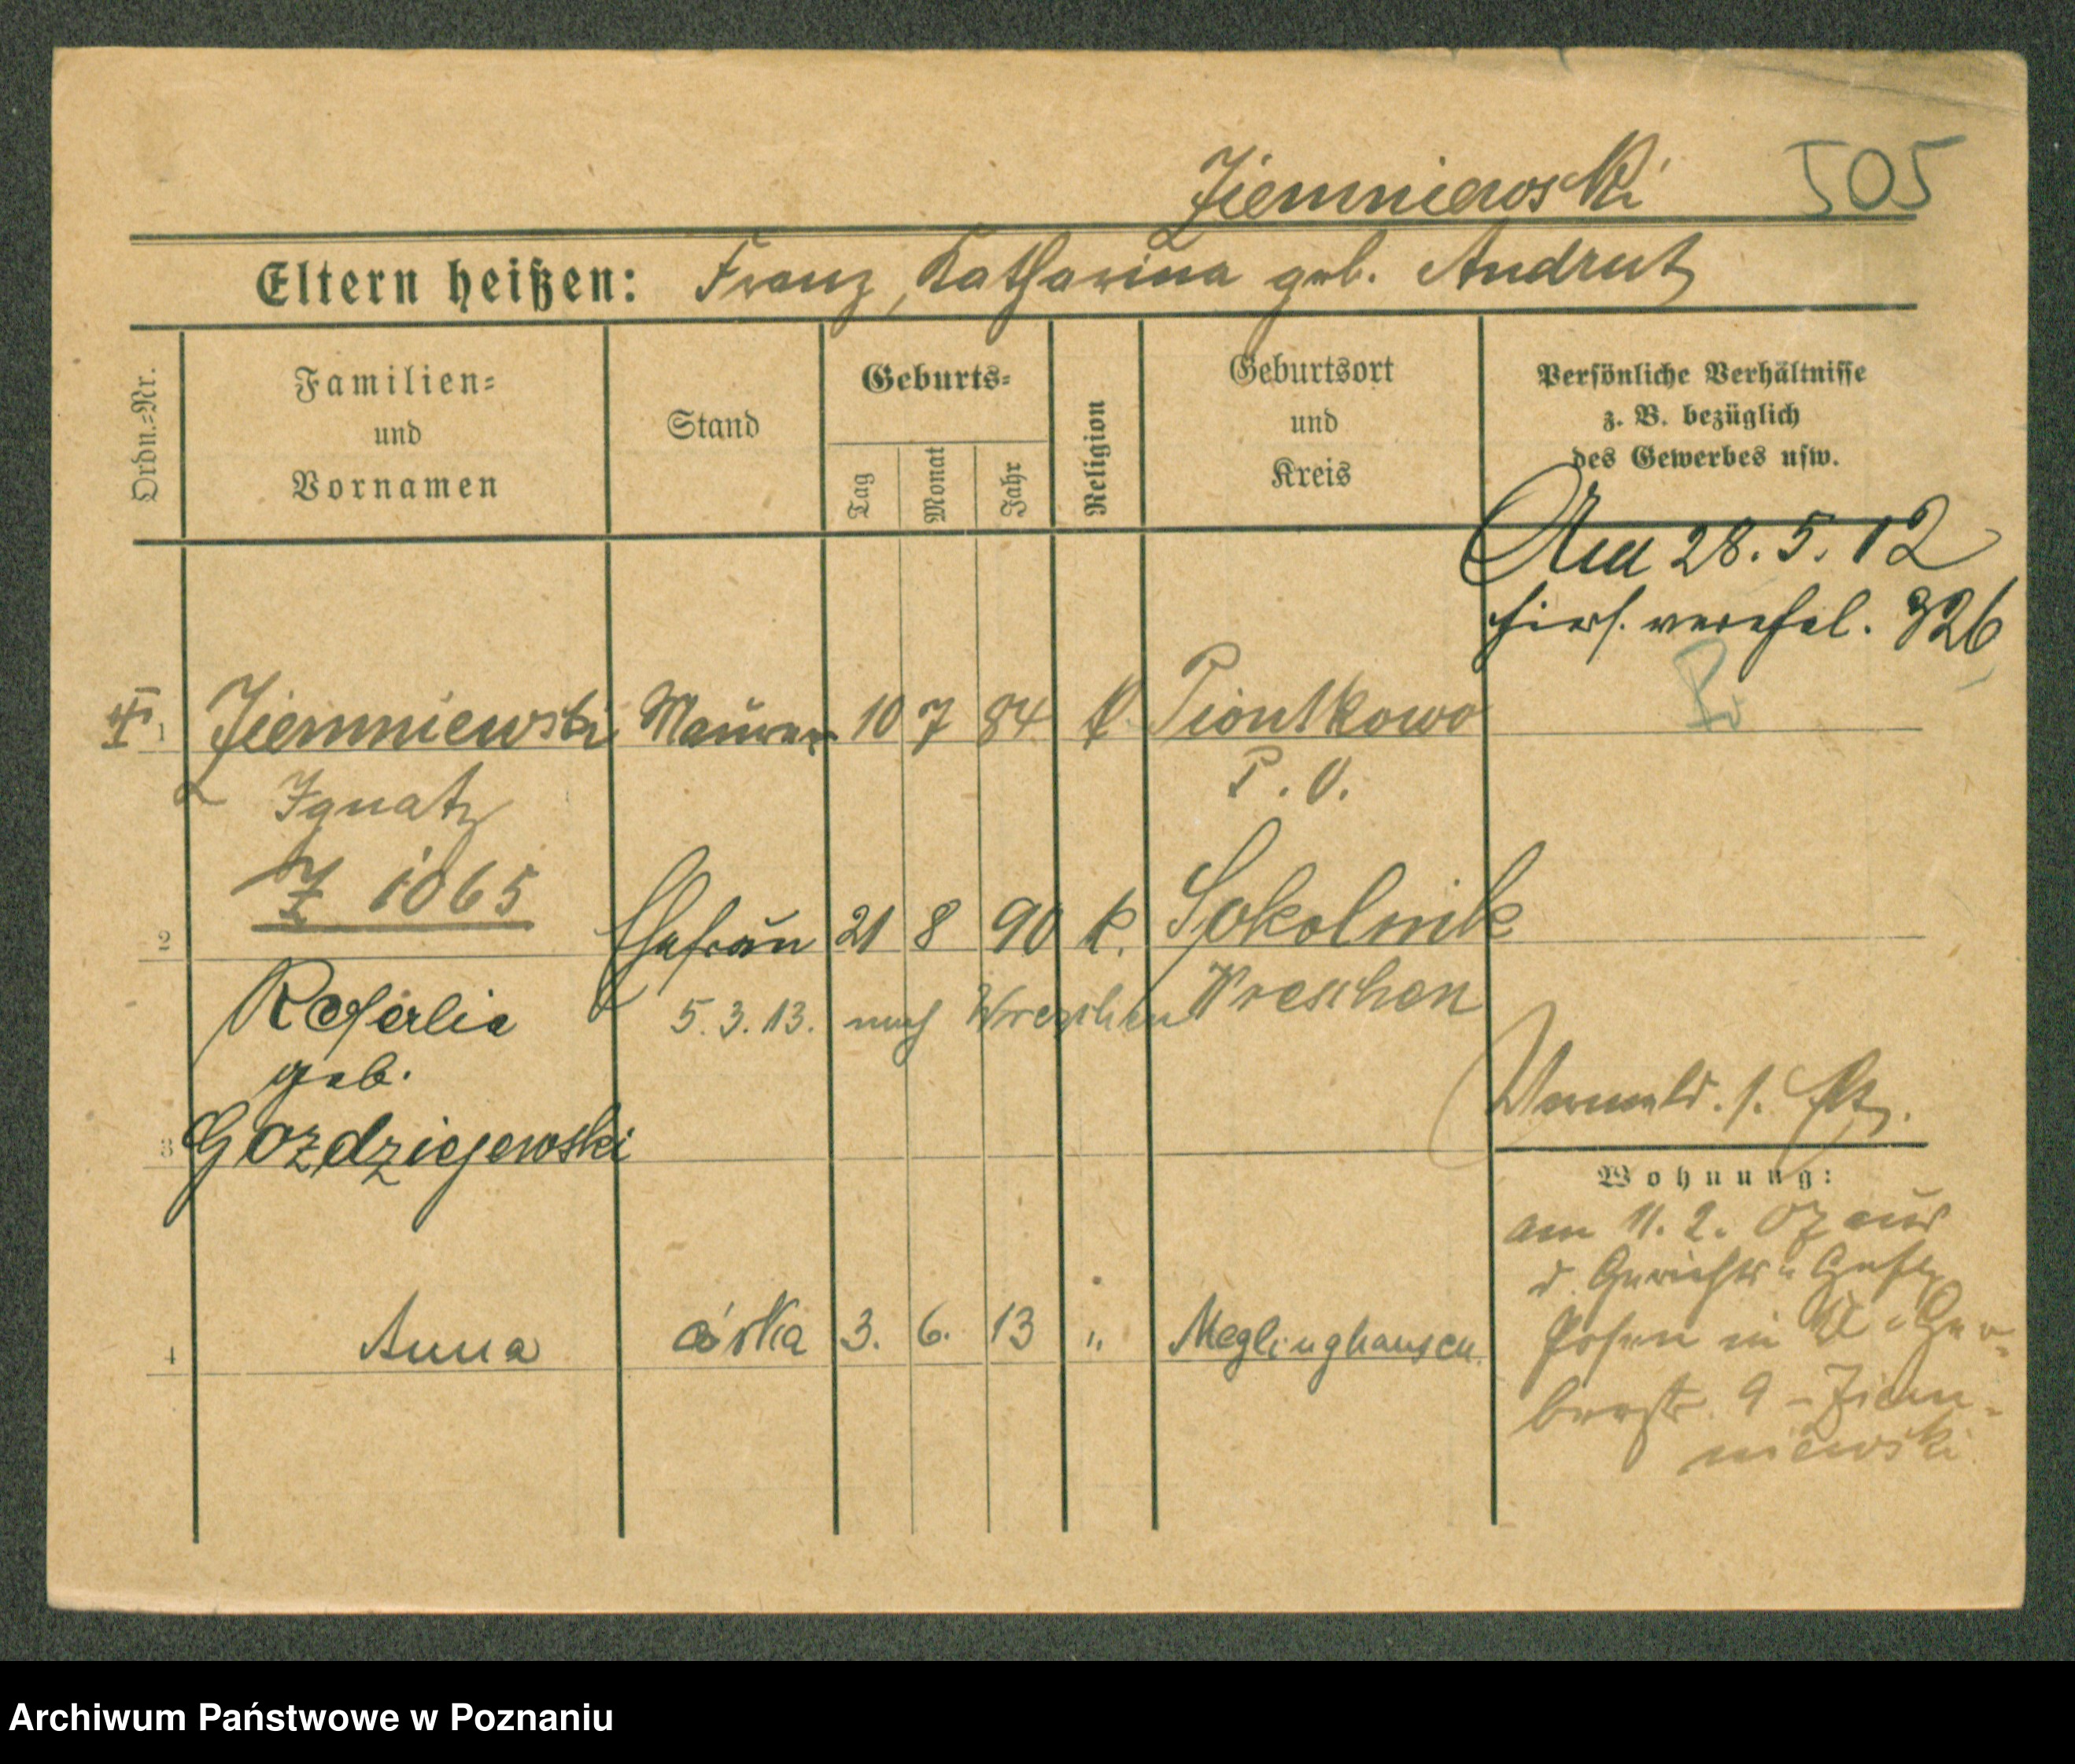 Ziemniewski 505
Eltern heißen: Franz, Katharina geb. Andrutz
Ordn.=Nr.
Familien=
und
Vornamen
Stand
Geburts=
Tag
Monat
Jahr
Religion
Geburtsort
und
Kreis
Persönliche Verhältnisse
z. B. bezüglich
des Gewerbes usw.
Am 28. 5. 12
hiers. verehel. 326
1 Ziemniewski Maurer 10 7 84 k. Piontkowo
Ignatz P. O.
Z 1065
2 Ehefrau 21 8 90 k. Sokolnik
Wreschen
Rosalie 5. 3. 13. nach Wreschen
geb.
3 Gozdziejewski
4 Anna córka 3. 6. 13 " Meglinghausen.
Wohnung:
am 11. 2. 07 aus
d. Gerichts
Posen in Ger=
berstr. 9 - Ziem=
niewski